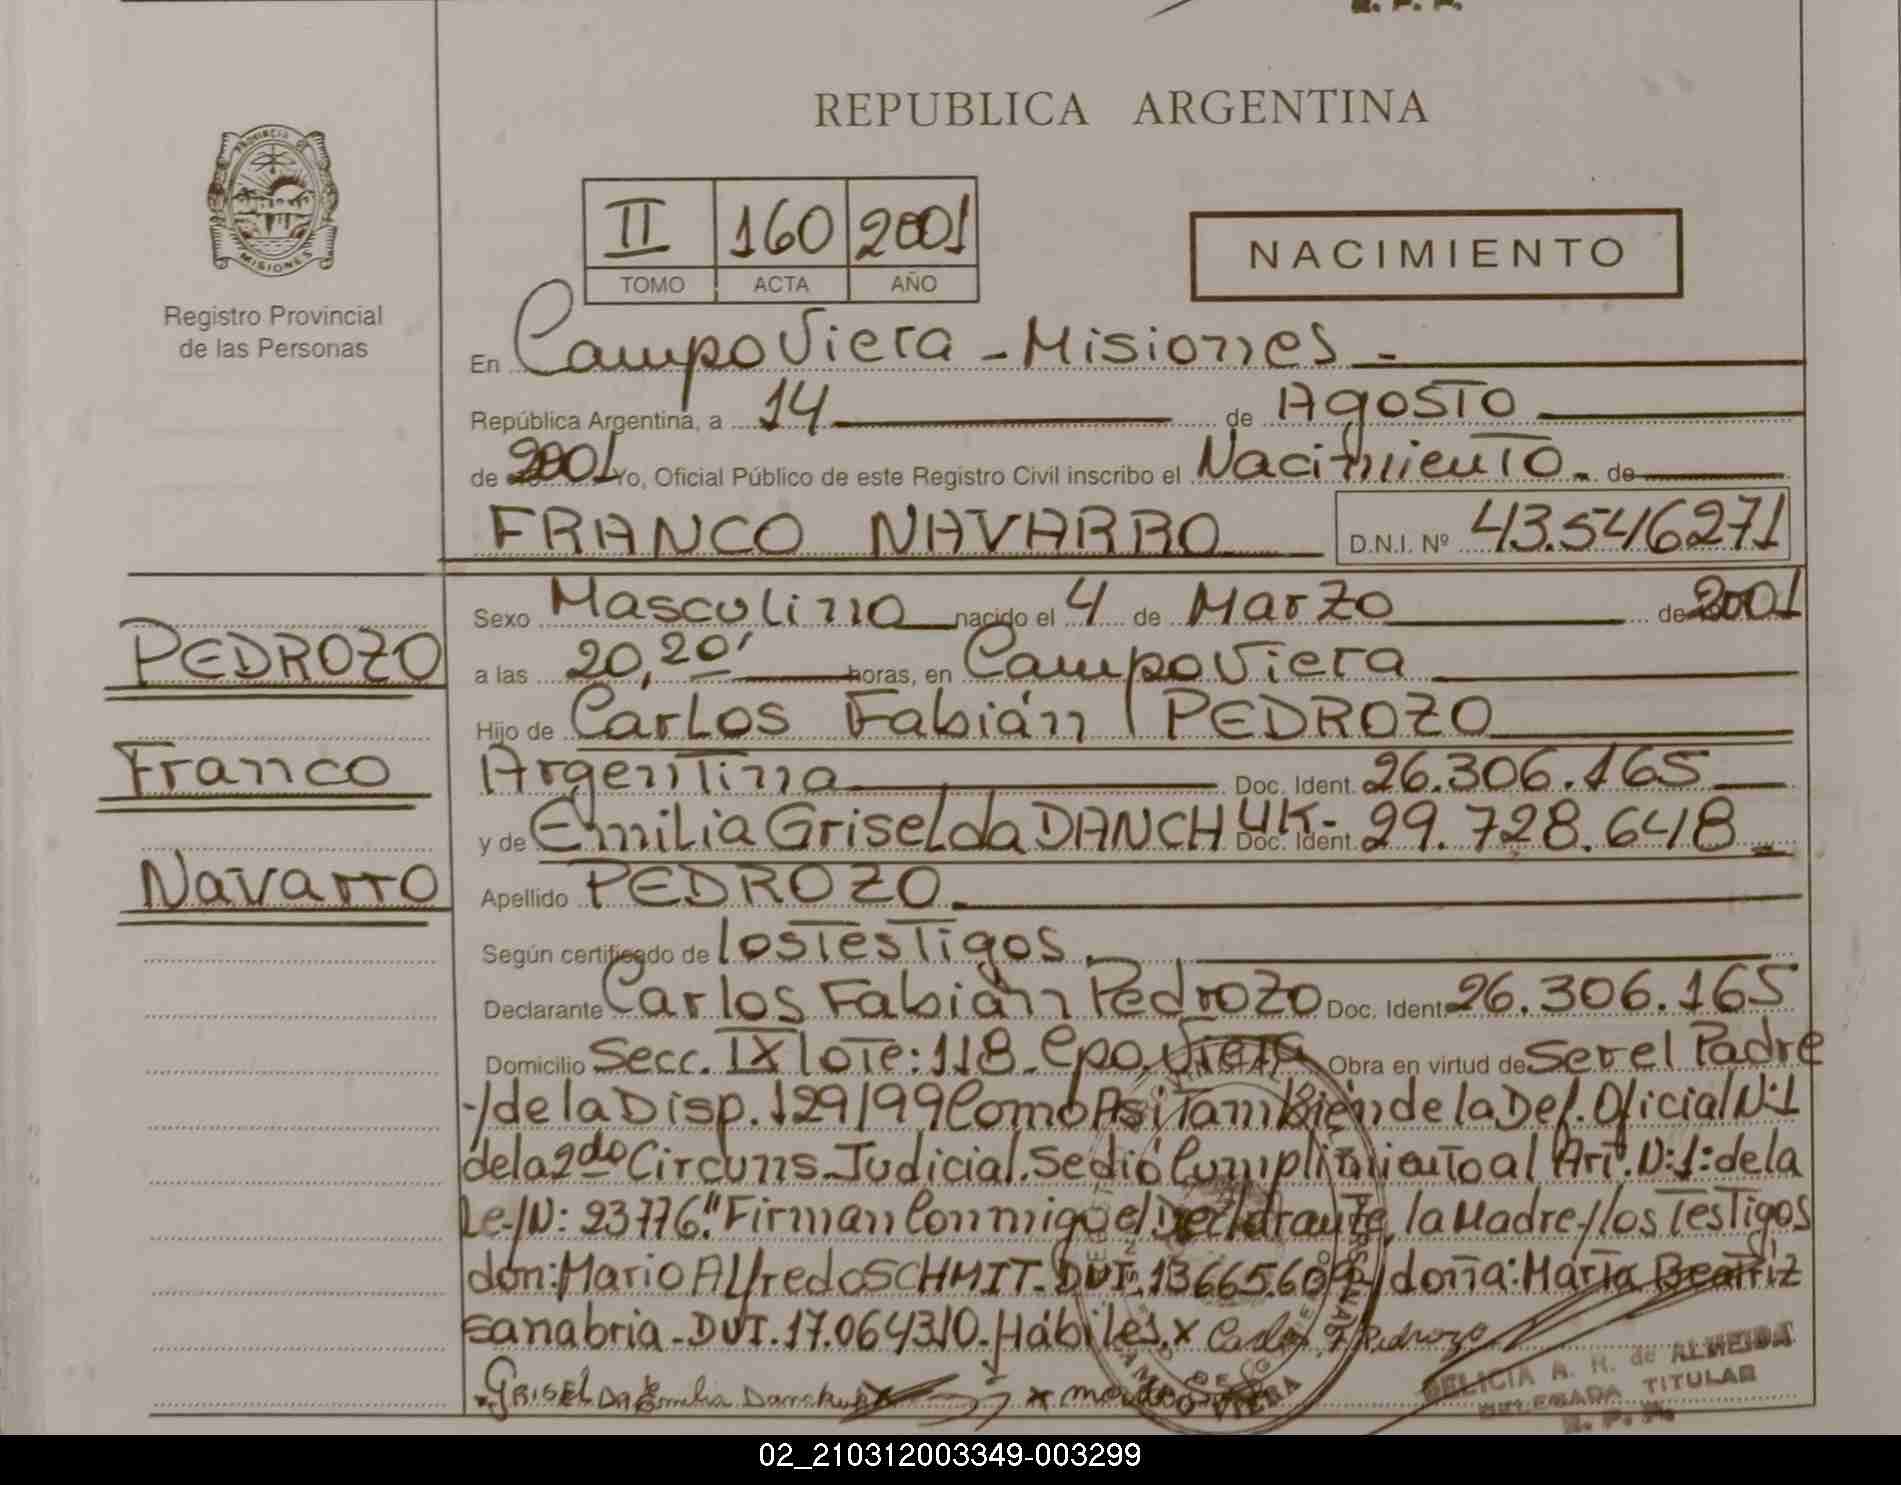 REPUBLICA ARGENTINA
PROVINCIA DE
MISIONES
Registro Provincial
de las Personas
II 160 2001
TOMO ACTA AÑO
NACIMIENTO
En Campo Viera - Misiones -
República Argentina, a 14 de Agosto
de 2001 Yo, Oficial Público de este Registro Civil inscribo el Nacimiento de
FRANCO NAVARRO D.N.I. Nº 43.546271
PEDROZO
Franco
Navarro
Sexo Masculino nacido el 4 de Marzo de 2001
a las 20,20' horas, en Campo Viera
Hijo de Carlos Fabián PEDROZO
Argentina Doc. Ident. 26.306.165
y de Emilia Griselda DANCHUK- Doc. Ident. 29.728.648
Apellido PEDROZO
Según certificado de los Testigos.
Declarante Carlos Fabián Pedrozo Doc. Ident. 26.306.165
Domicilio Secc. IX lote: 118. Cpo. Viera Obra en virtud de Ser el Padre
y de la Disp. 129/99 Como Asi Tambien de la Def. Oficial N:1
de la 2do Circuns. Judicial. Se dió Cumplimiento al Art. N:1: de la
Ley N: 23776." Firman Conmigo el Declarante, la Madre y los Testigos
don: Mario Alfredo SCHMIT. DUI. 13665.609 y doña: María Beatriz
Sanabria - DUI. 17.064310. Hábiles. x Carlos F Pedrozo
GRISELDA Emilia Danchuk x
DELICIA A. H. de ALMEIDA
DELEGADA TITULAR
R. P. P.
02_210312003349-003299